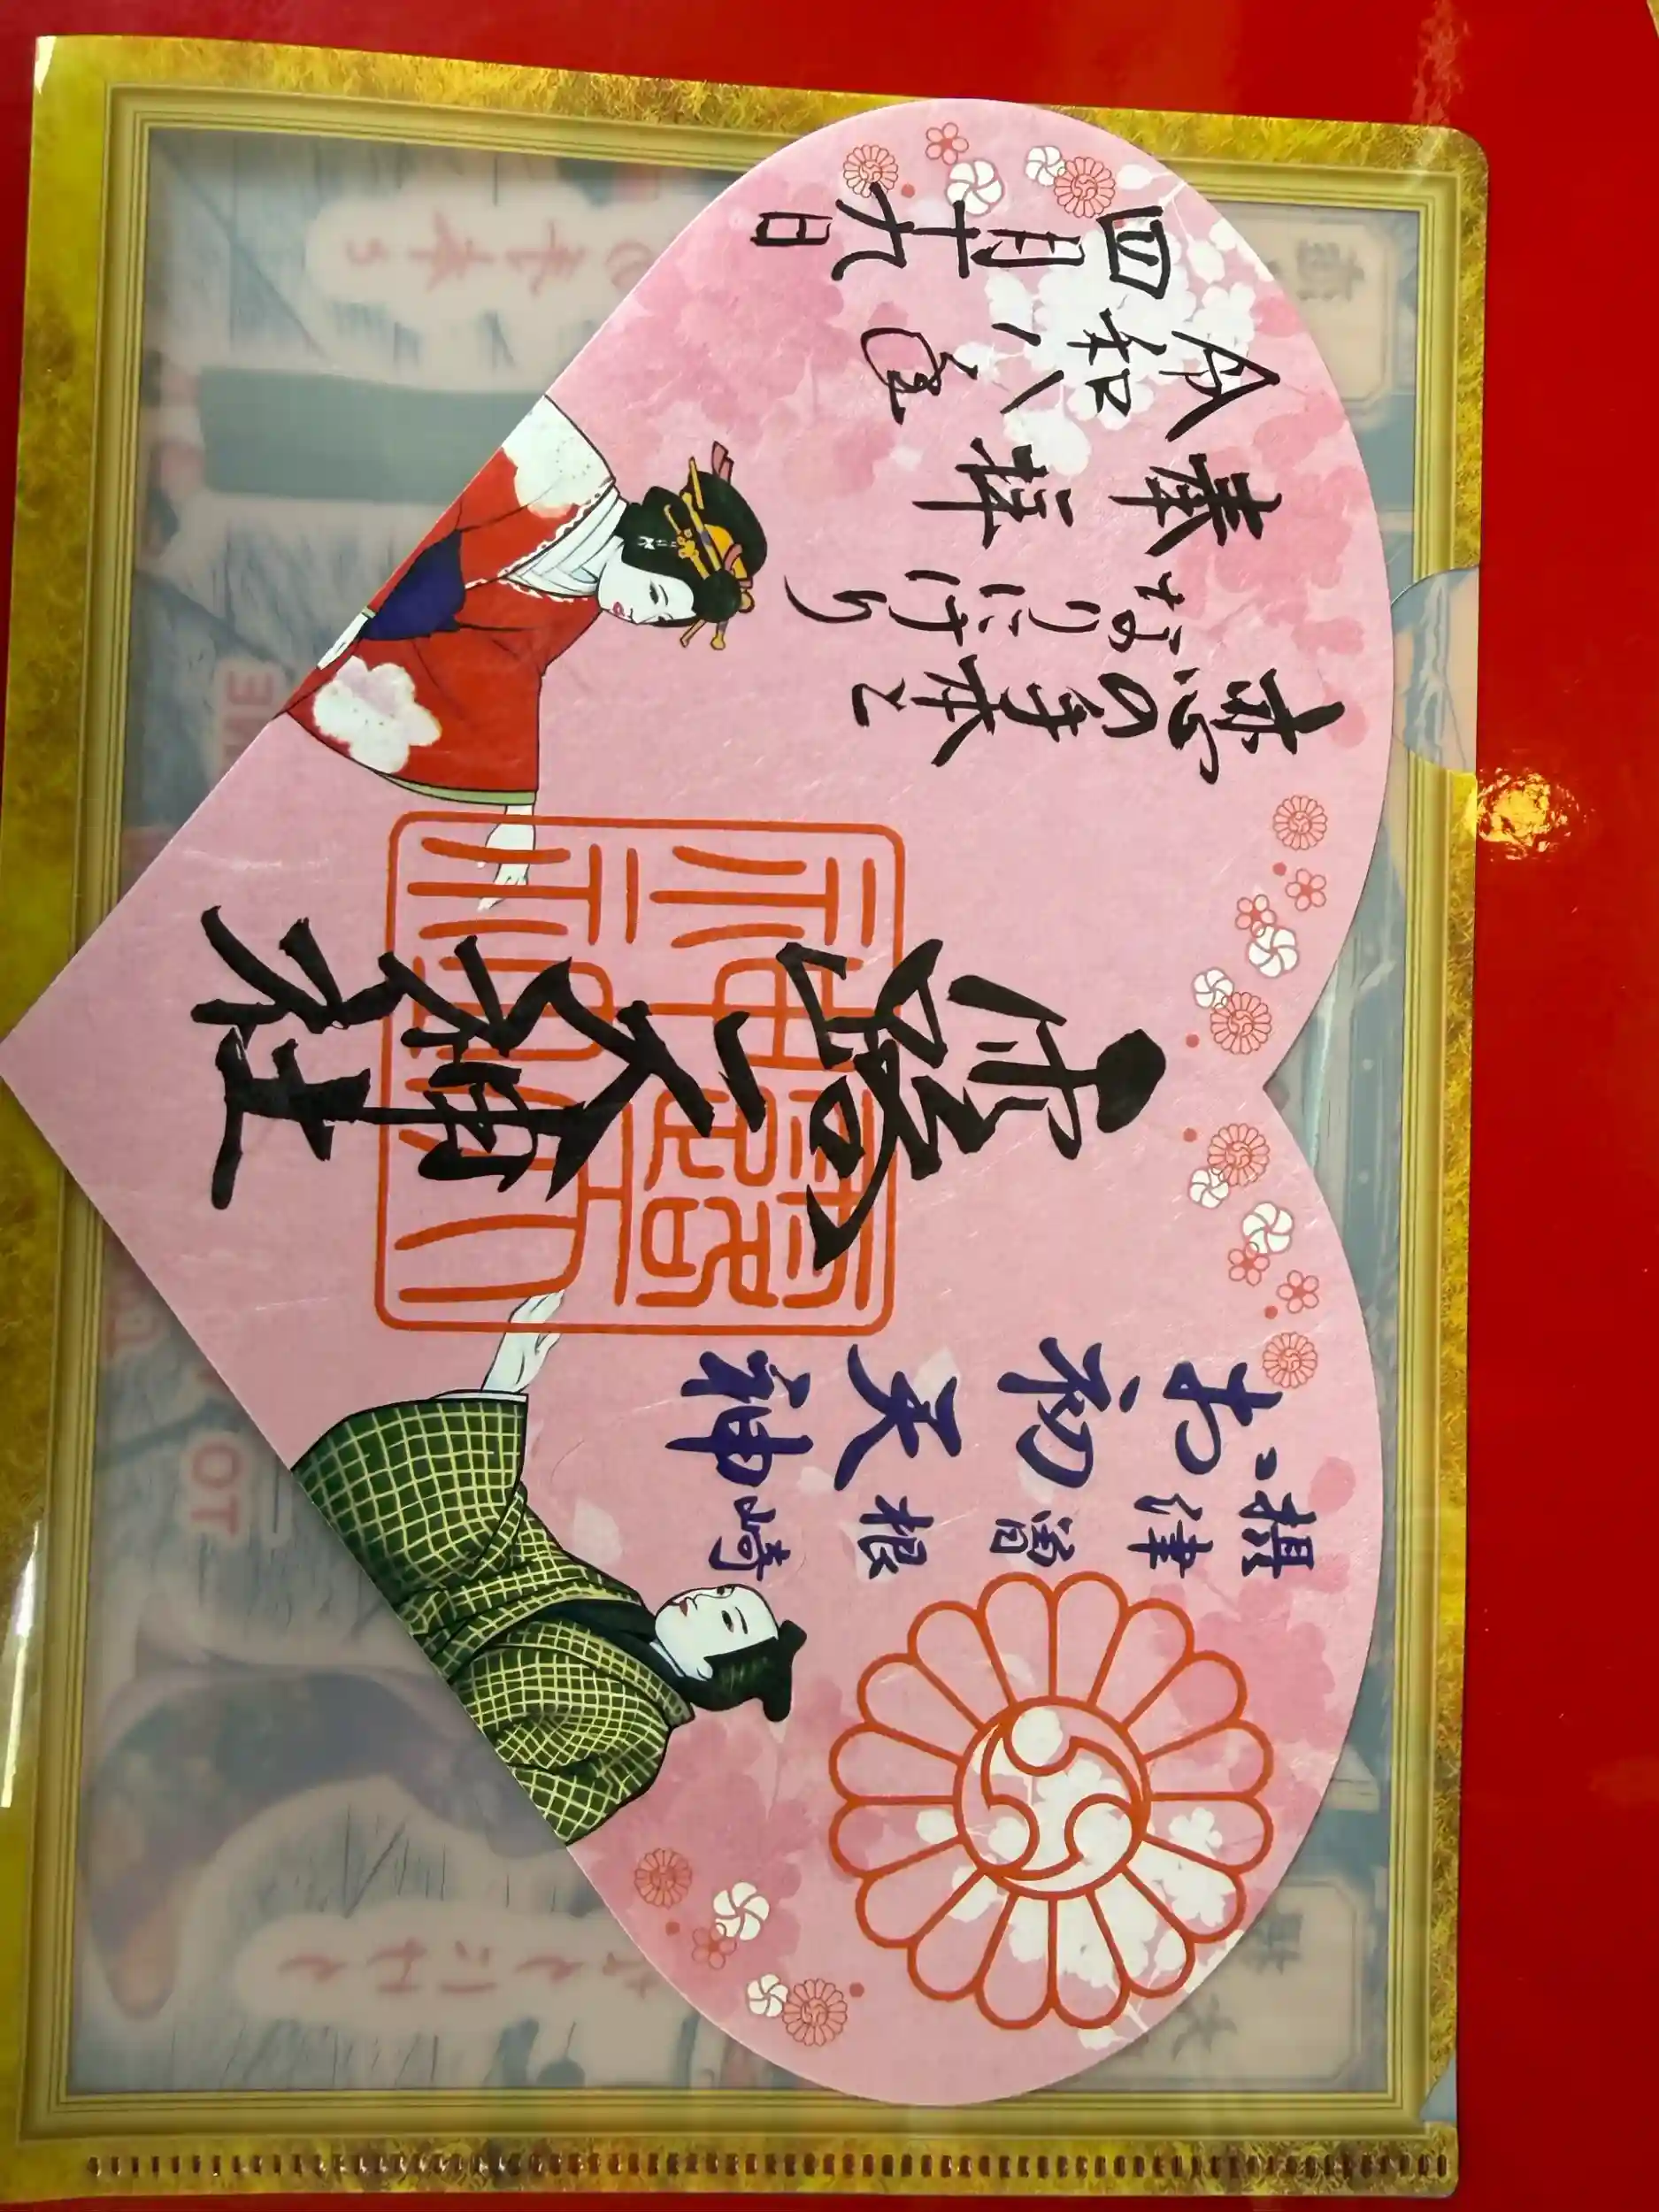 摂津曽根崎
お初天神
露天神社
恋の手本と
なりにけり
奉拝
令和八年
四月十九日